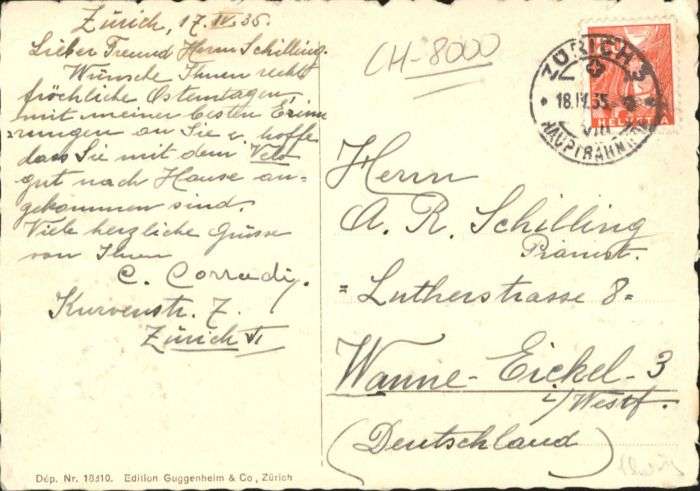 Zürich, 17. IV. 35.
Lieber Freund Herrn Schilling.
Wünsche Ihnen recht
fröchliche Ostemtagen,
mit meiner besten Erinn
rungen an Sie u. hoffe
dass Sie mit dem Velo
gut nach Hause an=
gekommen sind.
Viele herzliche Grüsse
von Ihnen
C. Corradi,
Kurvenstr. 7.
Zürich VI
Dép. Nr. 18310. Edition Guggenheim & Co., Zürich
CH-8000
ZÜRICH 3
18.IV.35
VIII
HAUPTBAHNHOF
HELVETIA
Herrn
A. R. Schilling
Pianist.
=Lutherstrasse 8=
Wanne-Eickel-3
i/Westf.
(Deutschland)